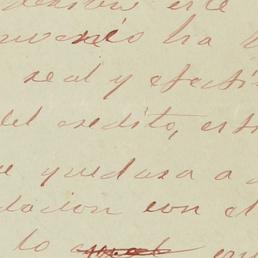 este
ha
real y efecti
del credito, est
quedara a
dacion con el
lo cual